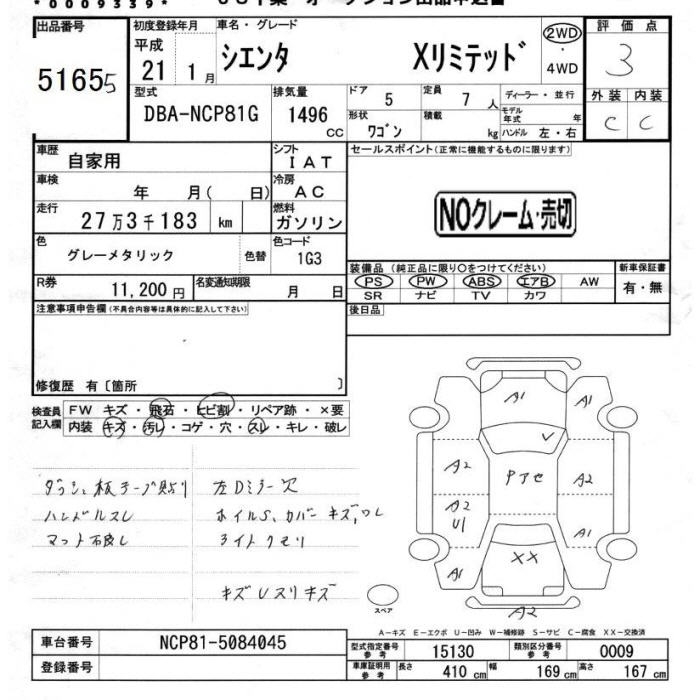 *0009339*
出品番号
51655
初度登録年月 車名・グレード
平成 21 1月 シエンタ Xリミテッド 2WD・4WD
評価点
3
型式 排気量
DBA-NCP81G 1496 CC
ドア 5 定員 7人 ディーラー・並行
形状 ワゴン 積載 kg
モデル年式 年
ハンドル 左・右
外装 内装
C C
車歴 自家用 シフト IAT
セールスポイント(正常に機能するものに限ります)
車検 年 月( 日) 冷房 AC
NOクレーム・売切
走行 27万3千183 km 燃料 ガソリン
色 グレーメタリック 色替 色コード 1G3
装備品(純正品に限り○をつけてください) 新車保証書
PS PW ABS エアB AW 有・無
SR ナビ TV カワ
R券 11,200円 名変通知期限 月 日
後日品
注意事項申告欄(不具合内容等は具体的に記入して下さい)
修復歴 有〔箇所 〕
検査員記入欄
FW キズ・飛石・ヒビ割・リペア跡・×要
内装 キズ・汚レ・コゲ・穴・スレ・キレ・破レ
ハンドルスレ
左Dミラー欠
ライトクモリ
A1
A2
A2
U1
A1
A2
A1
XX
A2
スペア
A-キズ E-エクボ U-凹み W-補修跡 S-サビ C-腐食 XX-交換済
車台番号 NCP81-5084045
登録番号
型式指定番号 参考 15130 類別区分番号 参考 0009
車庫証明用 参考 長さ 410 cm 幅 169 cm 高さ 167 cm